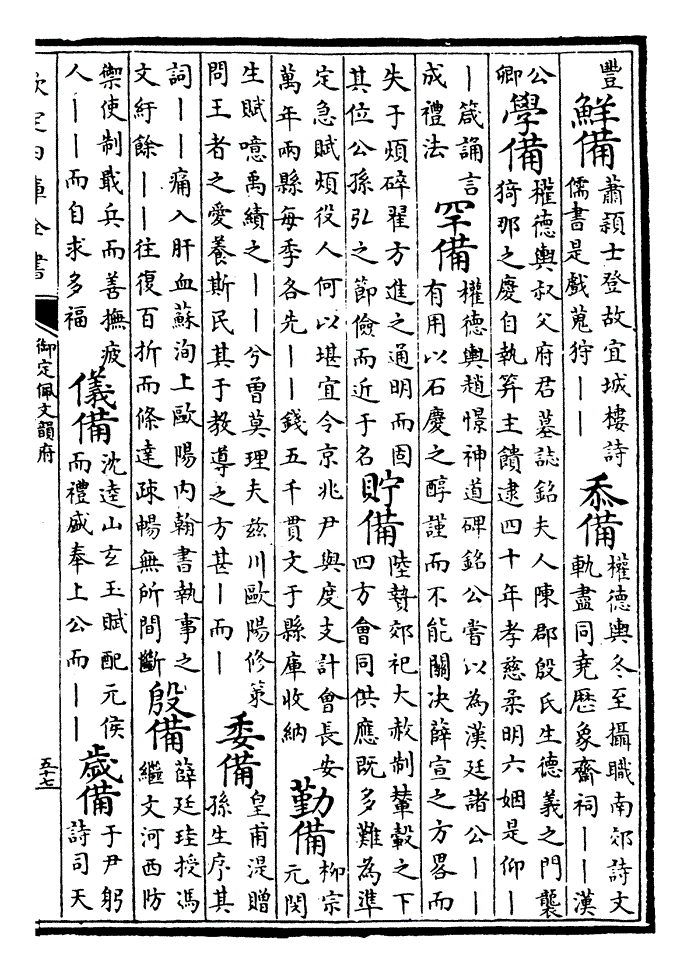 豐
鮮備
蕭穎士登故宜城樓詩
儒書是戲蒐狩——
忝備
權德輿冬至攝職南郊詩文
軌盡同堯歷象齋祠——漢
公
卿
學備
權德輿叔父府君墓誌銘夫人陳郡殷氏生德義之門襲
猗那之慶自執笄主饋逮四十年孝慈柔明六姻是仰—
—箴誦言
成禮法
罕備
權德輿趙憬神道碑銘公嘗以為漢廷諸公——
有用以石慶之醇謹而不能關决薛宣之方畧而
失于煩碎翟方進之通明而固
其位公孫弘之節儉而近于名
貯備
陸贄郊祀大赦制輦轂之下
四方會同供應既多難為準
定急賦煩役人何以堪宜令京兆尹與度支計會長安
萬年兩縣每季各先——錢五千貫文于縣庫收納
勤備
柳宗
元閔
生賦噫禹績之——兮曾莫理夫兹川歐陽修策
問王者之愛養斯民其于教導之方甚—而—
委備
皇甫湜贈
孫生序其
詞——痛入肝血蘇洵上歐陽内翰書執事之
文紆餘——往復百折而條達疎暢無所間斷
殷備
薛廷珪授馮
繼文河西防
禦使制戢兵而善撫疲
人——而自求多福
儀備
沈逵山玄玉賦配元侯
而禮盛奉上公而——
歲備
于尹躬
詩司天
欽定四庫全書
御定佩文韻府
五十七